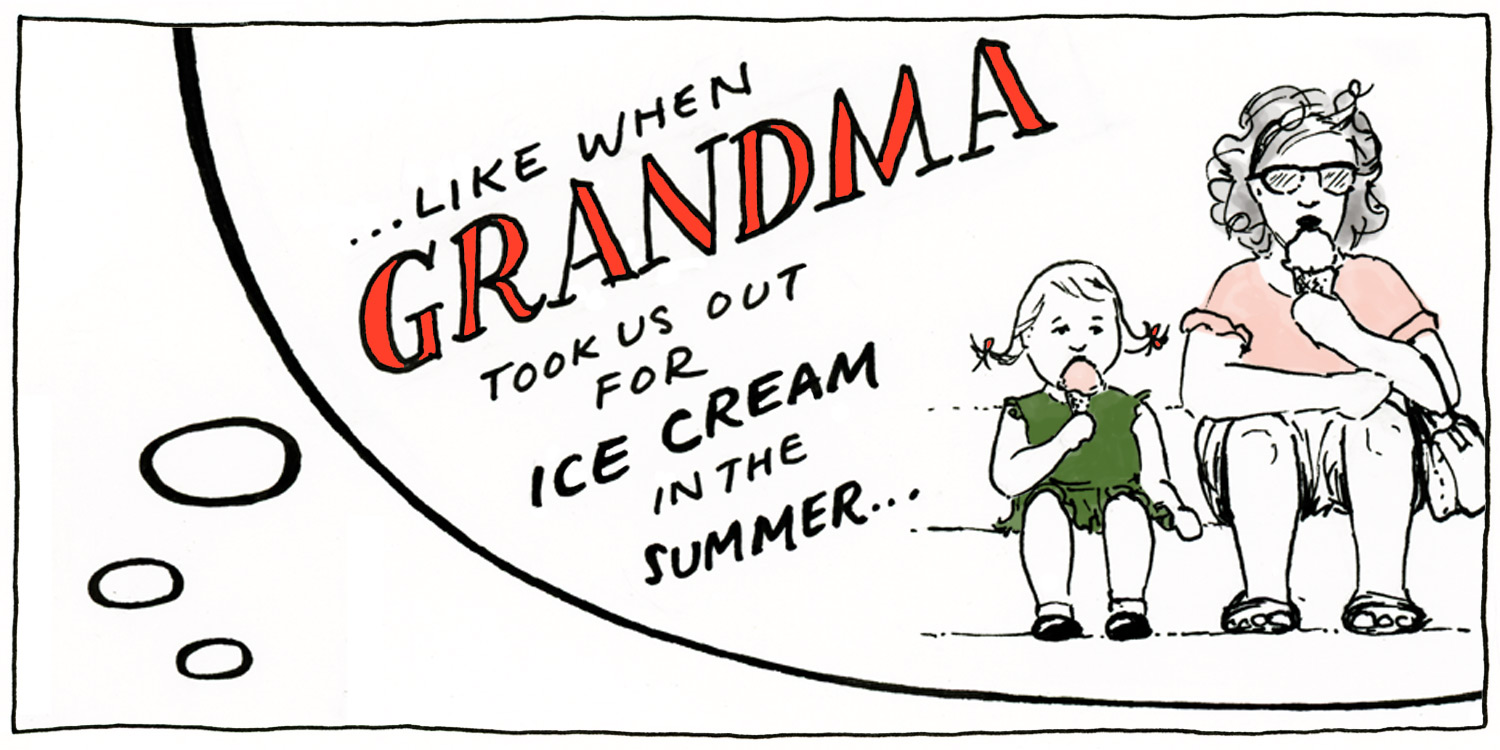 ...LIKE WHEN
GRANDMA
TOOK US OUT
FOR
ICE CREAM
IN THE
SUMMER...